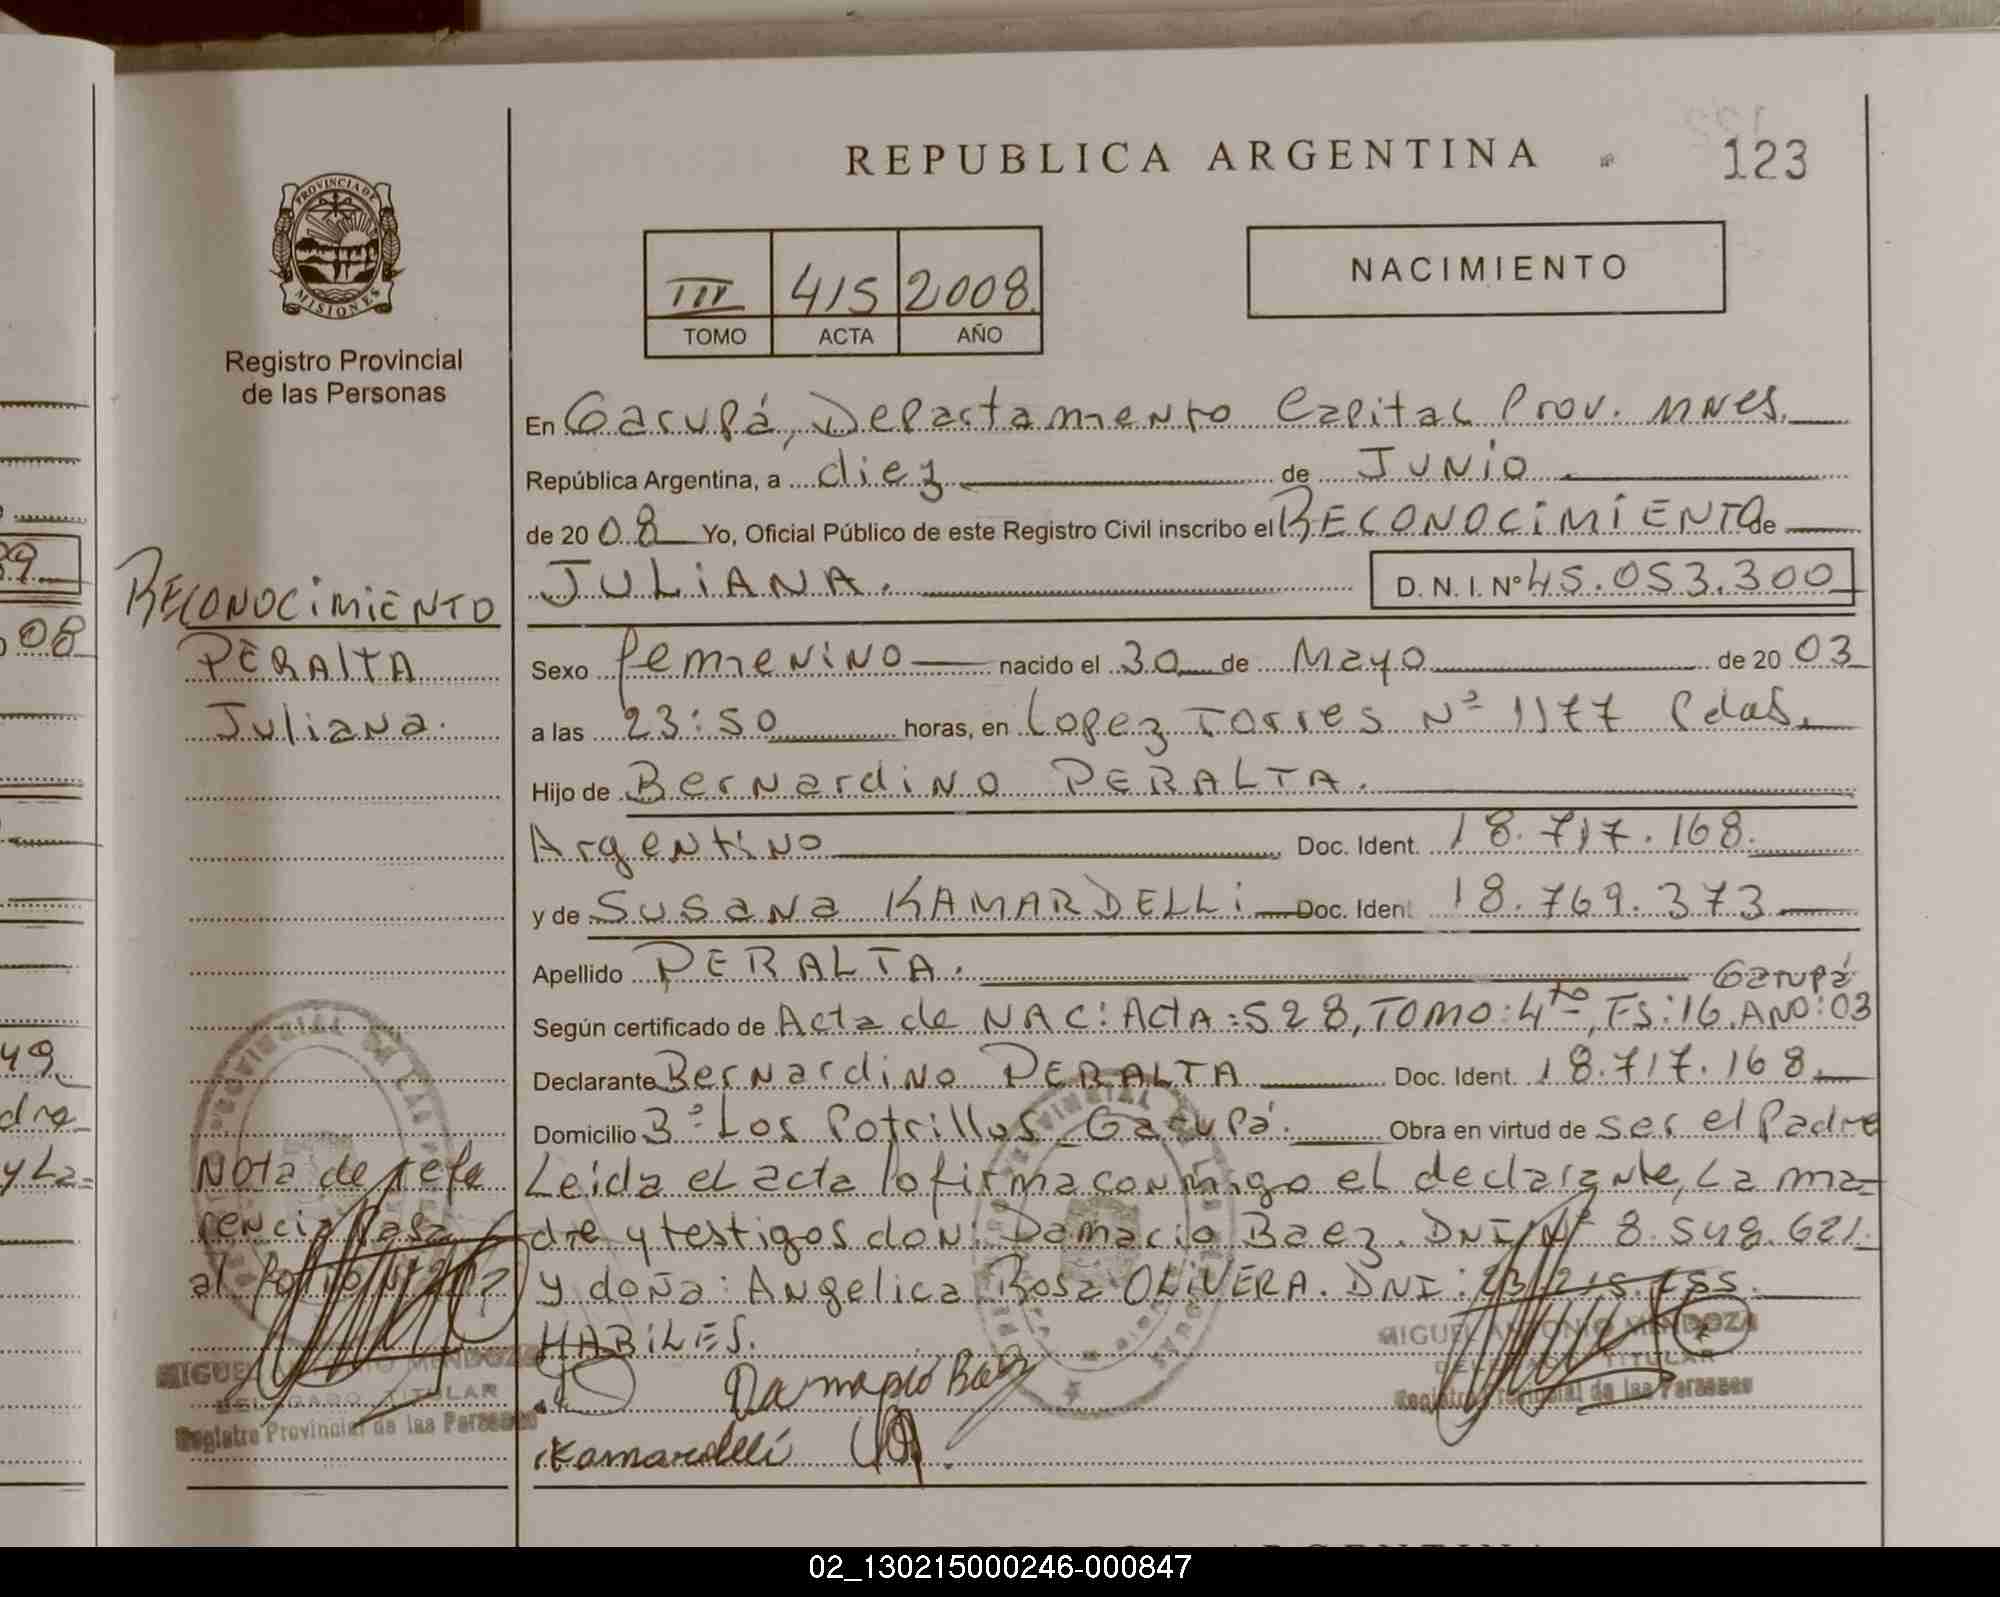 REPUBLICA ARGENTINA
Nº 123
PROVINCIA DE
MISIONES
Registro Provincial
de las Personas
III 415 2008
TOMO ACTA AÑO
NACIMIENTO
En Garupá, Departamento Capital Prov. Mnes.
República Argentina, a diez de Junio
de 2008 Yo, Oficial Público de este Registro Civil inscribo el RECONOCIMIENTO de
JULIANA. D.N.I. Nº 45.053.300
RECONOCIMIENTO
PERALTA
Juliana.
Sexo femenino nacido el 30 de Mayo de 2003
a las 23:50 horas, en Lopez Torres Nº 1177 Pdas.
Hijo de Bernardino PERALTA.
Argentino Doc. Ident. 18.717.168.
y de Susana KAMARDELLi Doc. Ident 18.769.373
Apellido PERALTA. Garupá
Según certificado de Acta de NAC: Acta: 528, TOMO: 4to, Fs: 16. AÑO: 03
Declarante Bernardino PERALTA Doc. Ident. 18.717.168.
Domicilio Bº Los Potrillos Garupá. Obra en virtud de ser el Padre
Leida el acta lo firma conmigo el declarante, La ma-
dre y testigos don: Damacio Baez. DNI Nº 8.548.621.
y doña: Angelica Rosa OLIVERA. DNI:
HABILES.
Nota de refe
rencia Pasa
al
Damacio Baez
Kamardelli
MIGUEL ANTONIO MENDOZA
DELEGADO TITULAR
Registro Provincial de las Personas
MIGUEL ANTONIO MENDOZA
DELEGADO TITULAR
Registro Provincial de las Personas
02_130215000246-000847